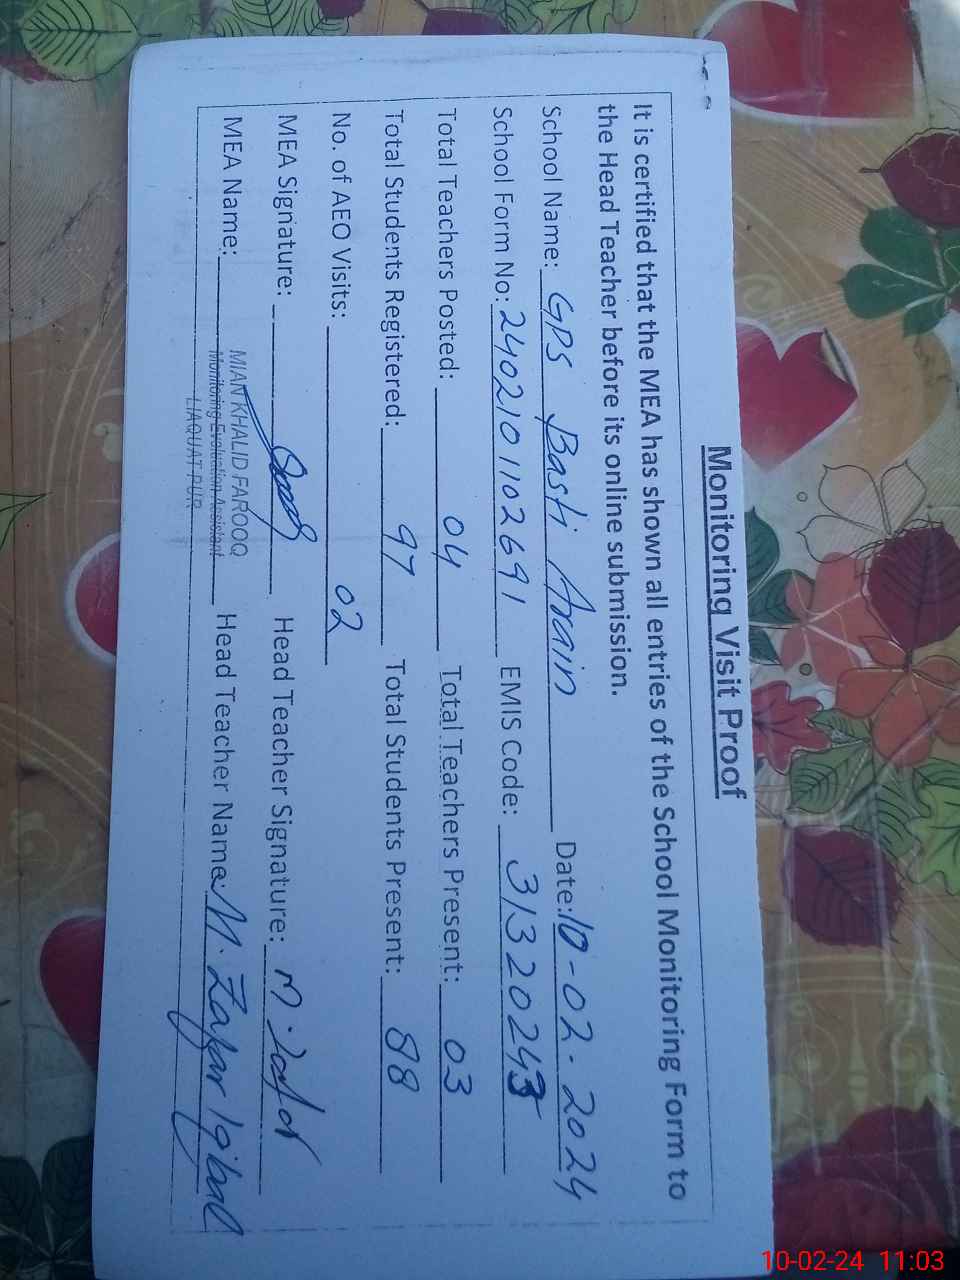 Monitoring Visit Proof
It is certified that the MEA has shown all entries of the School Monitoring Form to
the Head Teacher before its online submission.
School Name: GPS Basti Arain Date: 10-02-2024
School Form No: 2402101102691 EMIS Code: 31320243
Total Teachers Posted: 04 Total Teachers Present: 03
Total Students Registered: 97 Total Students Present: 88
No. of AEO Visits: 02
MEA Signature: Head Teacher Signature: M. Zafar
MEA Name: MIAN KHALID FAROOQ Head Teacher Name: M. Zafar Iqbal
Monitoring Evaluation Assistant
LIAQUAT PUR
10-02-24 11:03